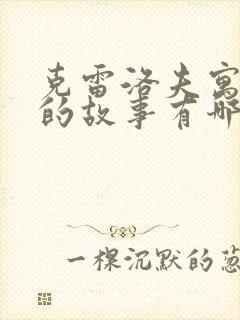 克雷洛夫寓
的故事有哪
一棵沉默的葱